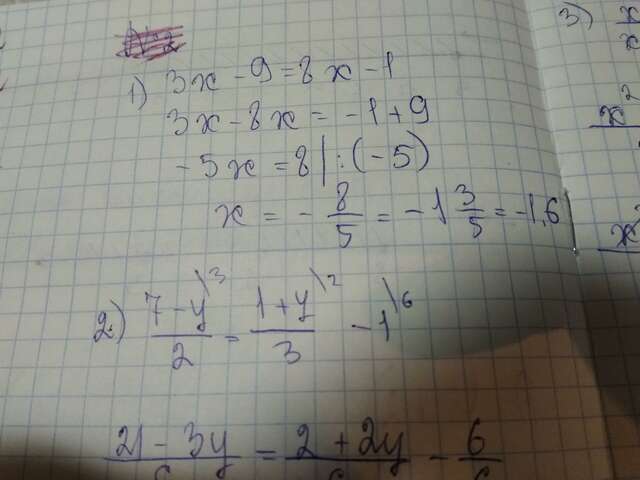 1) 3x - 9 = 8x - 1
3x - 8x = -1 + 9
-5x = 8 | : (-5)
x = - 8/5 = -1 3/5 = -1,6
2.) 7 - y/2 \3 = 1 + y/3 \2 - 1 \6
21 - 3y/6 = 2 + 2y/6 - 6/6
3) x/x
x²
x²